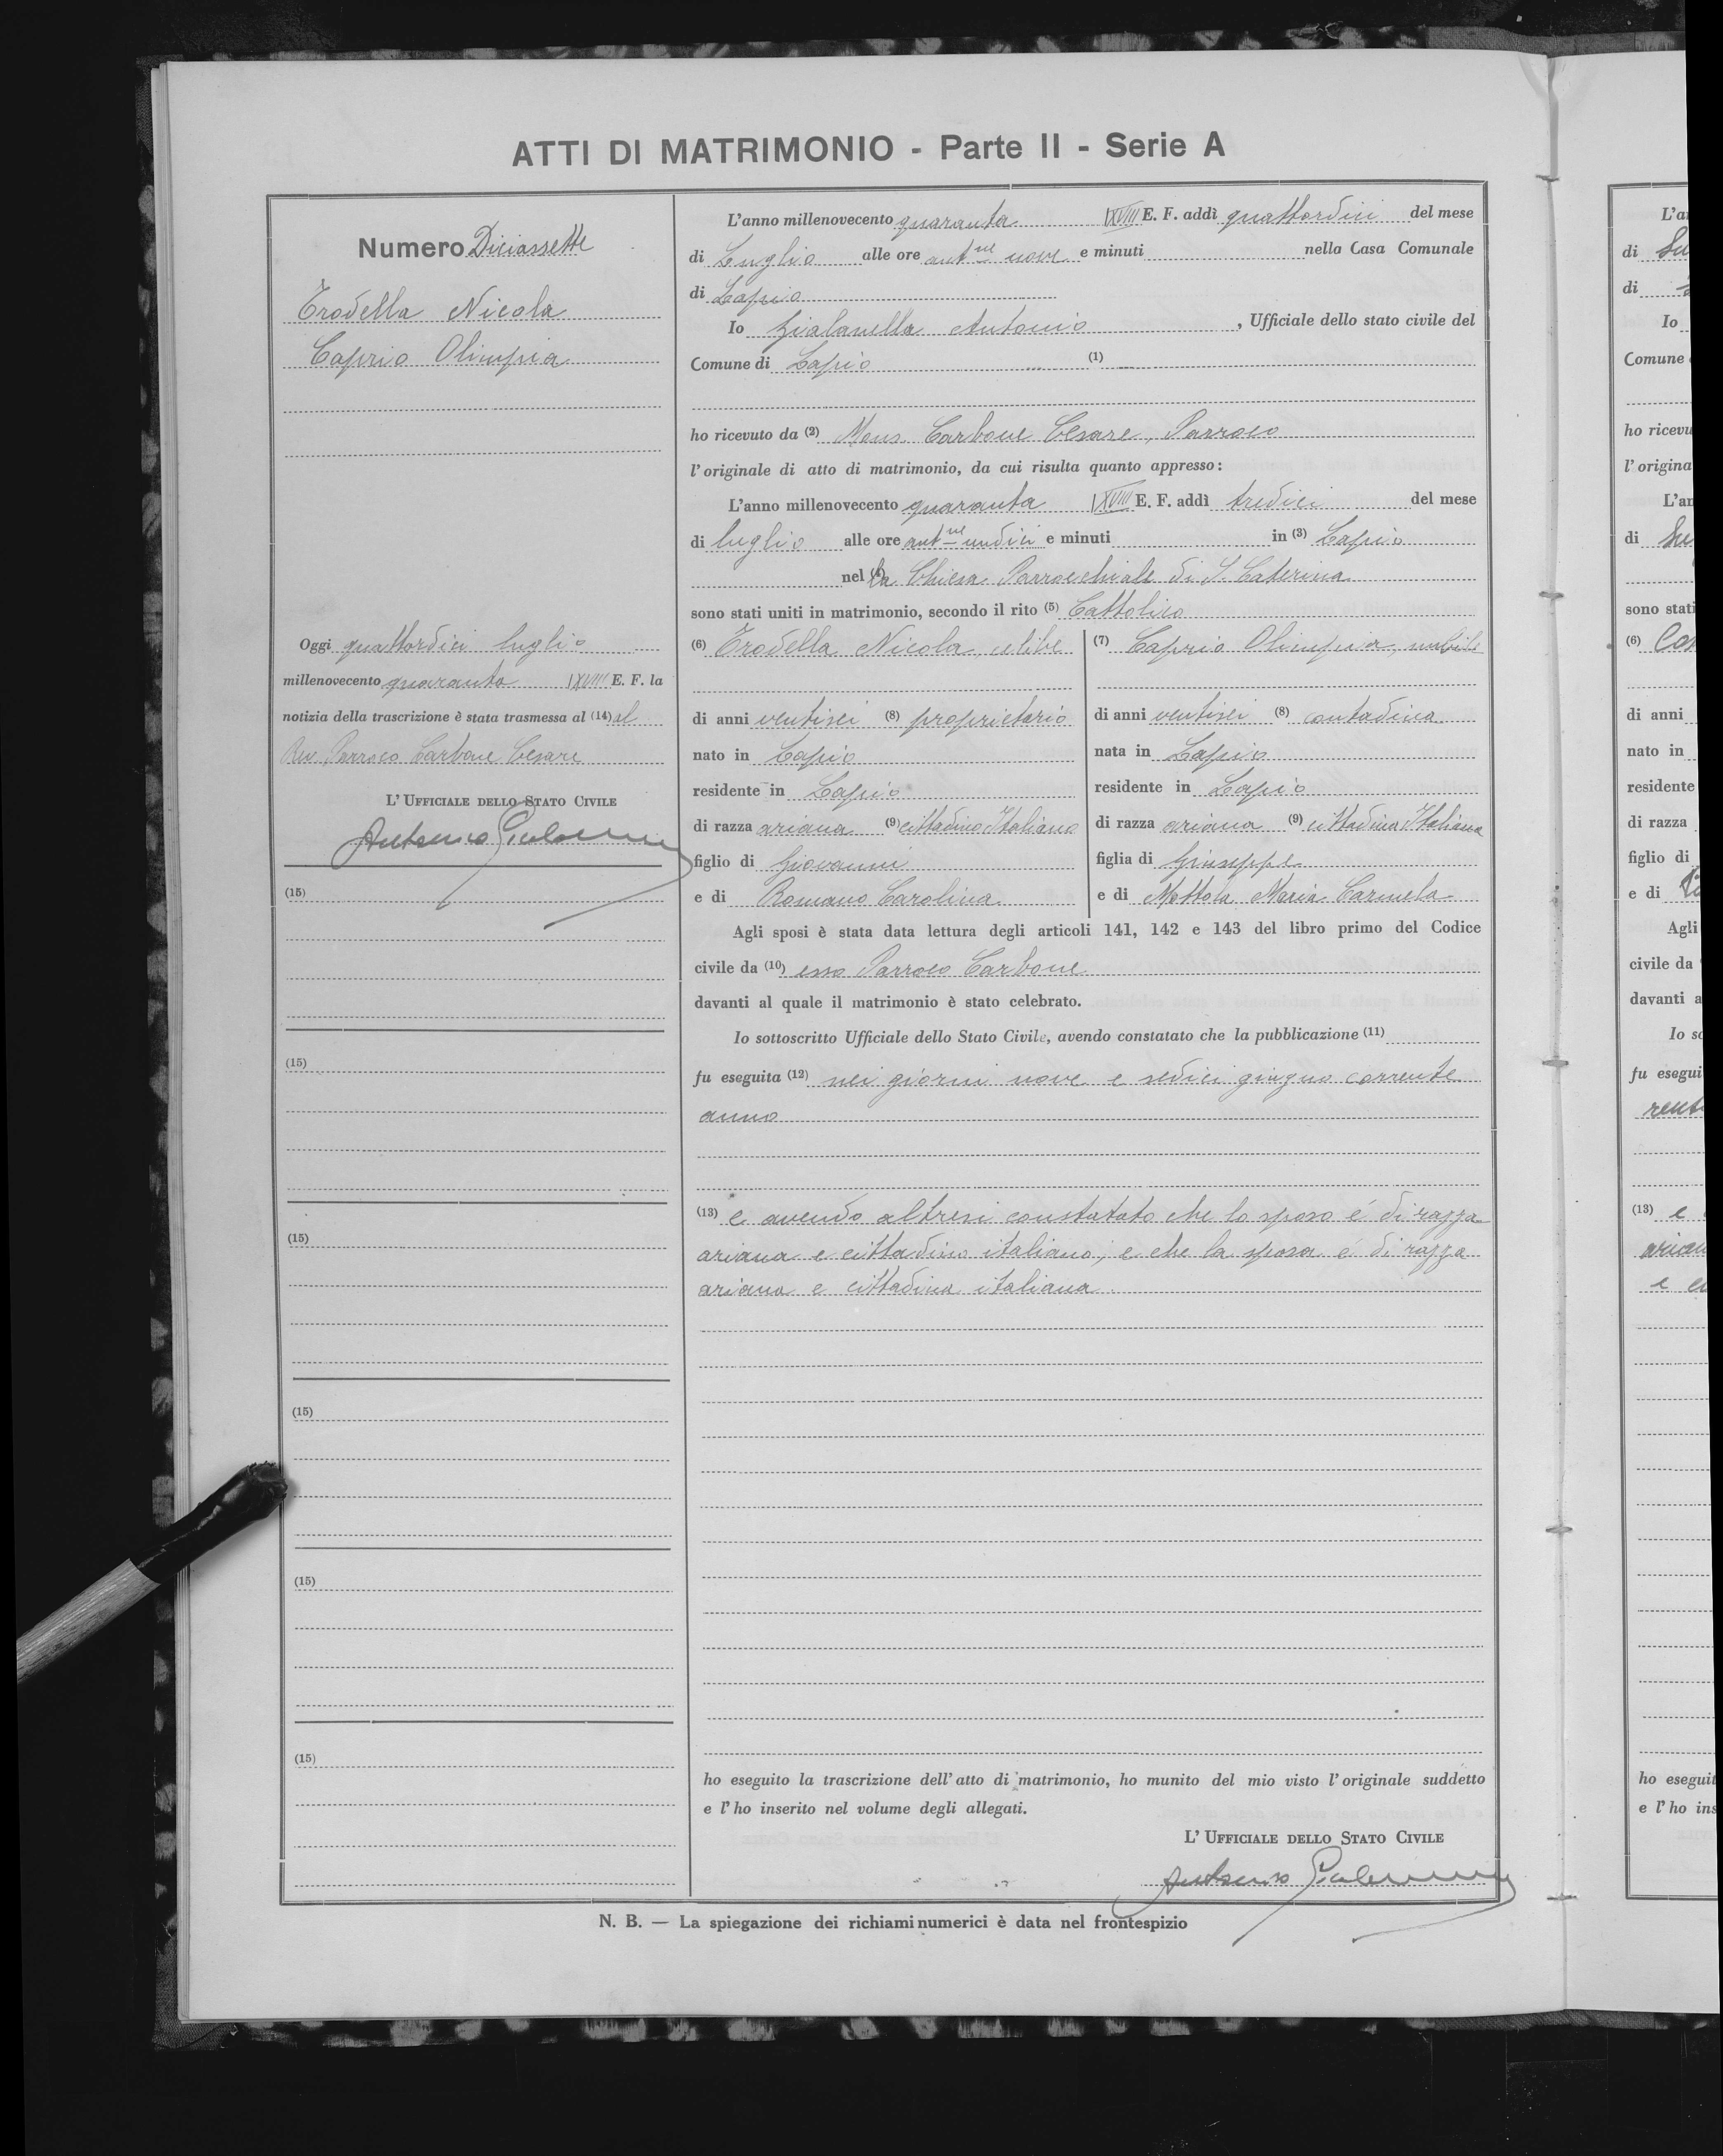 ATTI DI MATRIMONIO - Parte II - Serie A
Numero Diciassette
Trodella Nicola
Caprio Olimpia
Oggi quattordici luglio
millenovecento quaranta XVIII E. F. la
notizia della trascrizione è stata trasmessa al (14) al
Rev. Parroco Carbone Cesare
L'UFFICIALE DELLO STATO CIVILE
Antonio
(15)
(15)
(15)
(15)
(15)
(15)
L'anno millenovecento quaranta XVIII E. F. addì quattordici del mese
di Luglio alle ore ant.ne nove e minuti nella Casa Comunale
di Lapio
Io Gialanella Antonio, Ufficiale dello stato civile del
Comune di Lapio (1)
ho ricevuto da (2) Mons. Carbone Cesare, Parroco
l'originale di atto di matrimonio, da cui risulta quanto appresso:
L'anno millenovecento quaranta XVIII E. F. addì tredici del mese
di luglio alle ore ant.ne undici e minuti in (3) Lapio
nel (4) la Chiesa Parrocchiale di S. Caterina
sono stati uniti in matrimonio, secondo il rito (5) Cattolico
(6) Trodella Nicola, celibe
di anni ventisei (8) proprietario
nato in Lapio
residente in Lapio
di razza ariana (9) cittadino Italiano
figlio di Giovanni
e di Romano Carolina
(7) Caprio Olimpia, nubile
di anni ventisei (8) contadina
nata in Lapio
residente in Lapio
di razza ariana (9) cittadina Italiana
figlia di Giuseppe
e di Mottola Maria Carmela
Agli sposi è stata data lettura degli articoli 141, 142 e 143 del libro primo del Codice
civile da (10) esso Parroco Carbone
davanti al quale il matrimonio è stato celebrato.
Io sottoscritto Ufficiale dello Stato Civile, avendo constatato che la pubblicazione (11)
fu eseguita (12) nei giorni nove e sedici giugno corrente
anno
(13) e avendo altresi constatato che lo sposo é di razza
ariana e cittadino italiano; e che la sposa é di razza
ariana e cittadina italiana.
ho eseguito la trascrizione dell'atto di matrimonio, ho munito del mio visto l'originale suddetto
e l'ho inserito nel volume degli allegati.
L'UFFICIALE DELLO STATO CIVILE
Antonio
N. B. — La spiegazione dei richiami numerici è data nel frontespizio
di
di
Io
Comune
ho ricevu
l'origina
di
sono stati
(6)
di anni
nato in
residente
di razza
figlio di
e di
Agli
civile da
davanti a
Io so
fu esegui
(13) e
ho eseguit
e l'ho ins